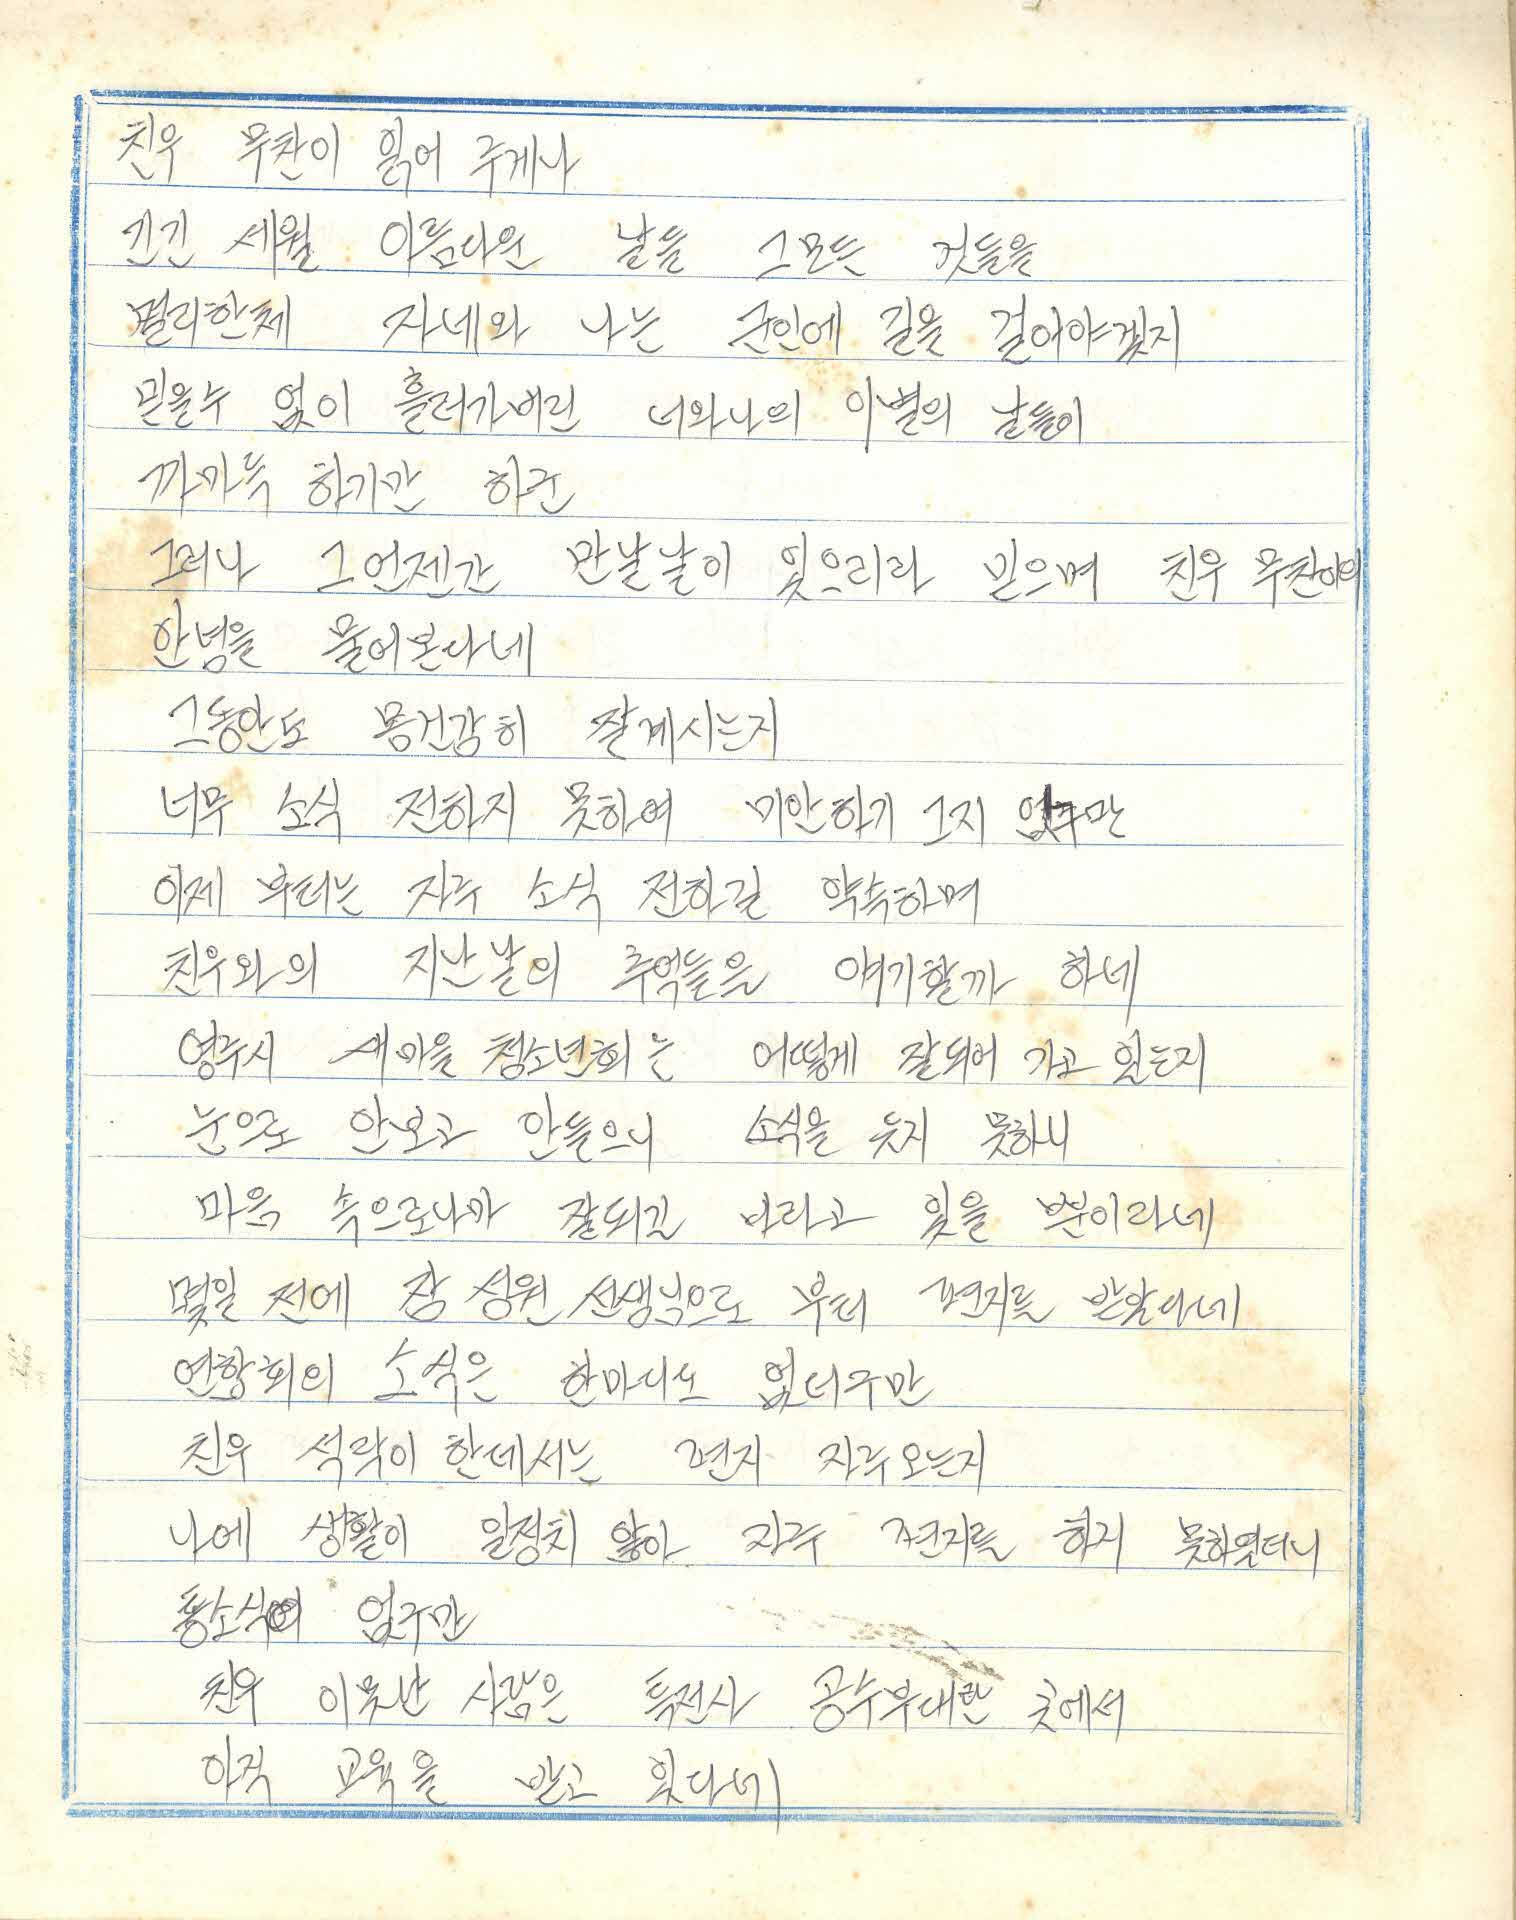 친우 무찬이 읽어 주게나
긴긴 세월 아름다운 날들 그모든 것들을
멀리한체 자네와 나는 군인에 길을 걸어야겠지
믿을수 없이 흘러가버린 너와나의 이별의 날들이
까마득 하기만 하군
그러나 그언젠간 만날날이 있으리라 믿으며 친우 무찬이의
안녕을 물어본다네
그동안도 몸건강히 잘계시는지
너무 소식 전하지 못하여 미안하기 그지 없구만
이제 부터는 자주 소식 전하길 약속하며
친우와의 지난날의 추억들은 얘기할까 하네
영주시 새마을 청소년회는 어떻게 잘되어 가고 있는지
눈으로 안보고 안들으니 소식을 듯지 못하니
마음 속으로나마 잘되길 바라고 있을 뿐이라네
몇일 전에 장 성원 선생님으로 부터 편지를 받았다네
연합회의 소식은 한마디도 없더구만
친우 석락이 한데서는 편지 자주오는지
나에 생활이 일정치 않아 자주 편지를 하지 못하였더니
통소식이 없구만
친우 이못난 사람은 특전사 공수부대란 곳에서
아직 교육을 받고 있다네